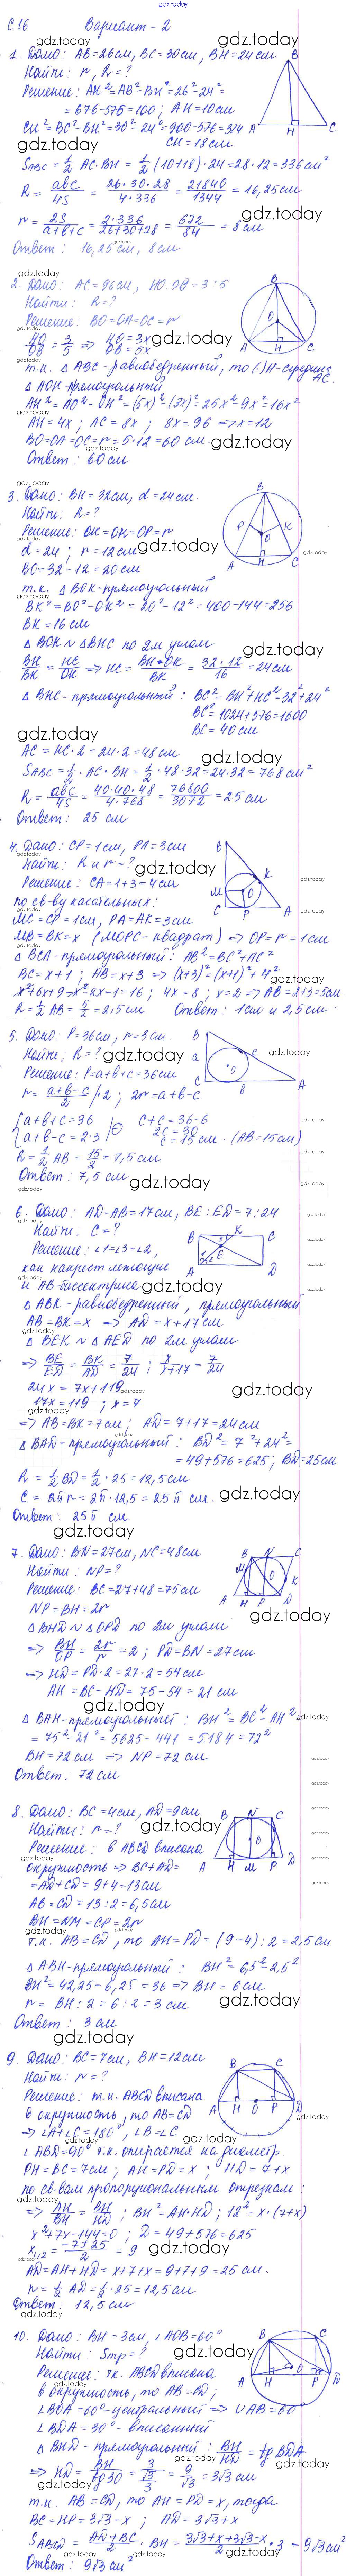 gdz.today
С 16 Вариант - 2
1. Дано: AB=26см, BC=30см, BH=24см
Найти: r, R=?
Решение: AH²=AB²-BH²=26²-24²=
=676-576=100; AH=10см
CH²=BC²-BH²=30²-24²=900-576=324
CH=18см
S_ABC = 1/2 AC·BH = 1/2 (10+18)·24=28·12=336см²
R = abc/4S = 26·30·28/4·336 = 21840/1344 = 16,25см
r = 2S/a+b+c = 2·336/26+30+28 = 672/84 = 8см
Ответ: 16,25см, 8см
2. Дано: AC=96см, HO:OB=3:5
Найти: R=?
Решение: BO=OA=OC=r
HO/OB = 3/5 => HO=3x OB=5x
т.к. △ABC-равнобедренный, то (·)H-середина AC.
△AOH-прямоугольный
AH²=AO²-OH²=(5x)²-(3x)²=25x²-9x²=16x²
AH=4x; AC=8x; 8x=96 => x=12
BO=OA=OC=r=5·12=60см.
Ответ: 60см
3. Дано: BH=32см, d=24см.
Найти: R=?
Решение: OH=OK=OP=r
d=24; r=12см
BO=32-12=20см
т.к. △BOK-прямоугольный
BK²=BO²-OK²=20²-12²=400-144=256
BK=16см
△BOK ~ △BHC по 2м углам
BH/BK = HC/OK => HC = BH·OK/BK = 32·12/16 = 24см
△BHC-прямоугольный: BC²=BH²+HC²=32²+24²
BC²=1024+576=1600
BC=40см
AC=HC·2=24·2=48см
S_ABC = 1/2·AC·BH = 1/2·48·32=24·32=768см²
R = abc/4S = 40·40·48/4·768 = 76800/3072 = 25см
Ответ: 25см
4. Дано: CP=1см, PA=3см
Найти: R и r=?
Решение: CA=1+3=4см
по св-ву касательных:
MC=CP=1см, PA=AK=3см
MB=BK=x (MOPC-квадрат) => OP=r=1см
△BCA-прямоугольный: AB²=BC²+AC²
BC=x+1; AB=x+3 => (x+3)²=(x+1)²+4²
x²+6x+9-x²-2x-1=16; 4x=8; x=2 => AB=2+3=5см
R = 1/2 AB = 5/2 = 2,5см Ответ: 1см и 2,5см.
5. Дано: P=36см, r=3см.
Найти: R=?
Решение: P=a+b+c=36см
r = a+b-c/2 /·2; 2r=a+b-c
{a+b+c=36 c+c=36-6
{a+b-c=2·3 |⊖ 2c=30
c=15см. (AB=15см)
R = 1/2 AB = 15/2 = 7,5см
Ответ: 7,5см
6. Дано: AD-AB=17см, BE:ED=7:24
Найти: C=?
Решение: ∠1=∠3=∠2,
как накрест лежащие
и AB-биссектриса
△ABK-равнобедренный, прямоугольный
AB=BK=x => AD=x+17см
△BEK ~ △AED по 2м углам
=> BE/ED = BK/AD = 7/24; x/x+17 = 7/24
24x=7x+119
17x=119; x=7
=> AB=BK=7см; AD=7+17=24см
△BAD-прямоугольный: BD²=7²+24²=
=49+576=625; BD=25см
R = 1/2 BD = 1/2·25=12,5см
C=2πr=2π·12,5=25π см.
Ответ: 25π см
7. Дано: BN=27см, NC=48см
Найти: NP=?
Решение: BC=27+48=75см
NP=BH=2r
△BHD ~ △OPD по 2м углам
=> BH/OP = 2r/r = 2; PD=BN=27см
=> HD=PD·2=27·2=54см
AH=BC-HD=75-54=21см
△BAH-прямоугольный: BH²=BC²-AH²=
=75²-21²=5625-441=5184=72²
BH=72см => NP=72см
Ответ: 72см
8. Дано: BC=4см, AD=9см
Найти: r=?
Решение: в ABCD вписана
окружность => BC+AD=
=AD+CD=9+4=13см
AB=CD=13:2=6,5см
BH=NM=CP=2r
т.к. AB=CD, то AH=PD=(9-4):2=2,5см
△ABH-прямоугольный: BH²=6,5²-2,5²
BH²=42,25-6,25=36 => BH=6см
r=BH:2=6:2=3см
Ответ: 3см
9. Дано: BC=7см, BH=12см
Найти: r=?
Решение: т.к. ABCD вписана
в окружность, то AB=CD
=> ∠A+∠C=180°, ∠B=∠C
∠ABD=90° т.к. опирается на диаметр
PH=BC=7см; AH=PD=x; HD=7+x
по св-вам пропорциональным отрезкам:
=> AH/BH = BH/HD; BH²=AH·HD; 12²=x·(7+x)
x²+7x-144=0; D=49+576=625
x₁,₂ = -7±25/2 = 9
AD=AH+HD=x+7+x=9+7+9=25см.
r = 1/2 AD = 1/2·25=12,5см
Ответ: 12,5см
10. Дано: BH=3см, ∠AOB=60°
Найти: Sтр=?
Решение: т.к. ABCD вписана
в окружность, то AB=CD;
∠BOA=60°-центральный => ∪AB=60°
∠BDA=30°-вписанный
△BHD-прямоугольный: BH/HD = tg BDA
=> HD = BH/tg30 = 3/(√3/3) = 9/√3 = 3√3см
т.к. AB=CD, то AH=PD=x, тогда
BC=HP=3√3-x; AD=3√3+x
S_ABCD = AD+BC/2 · BH = 3√3+x+3√3-x/2 · 3=9√3см²
Ответ: 9√3см²